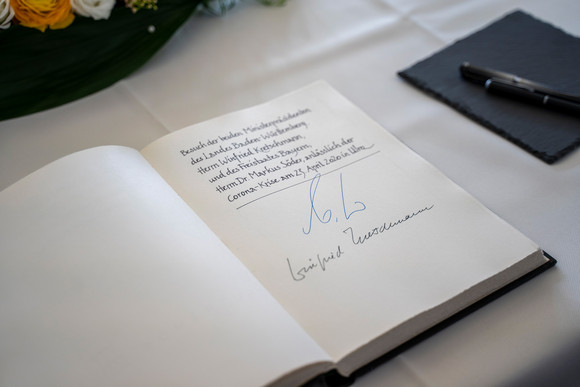 Besuch der beiden Ministerpräsidenten
des Landes Baden-Württemberg
Herrn Winfried Kretschmann,
und des Freistaates Bayern,
Herrn Dr. Markus Söder, anlässlich der
Corona-Krise am 23. April 2020 in Ulm.
Winfried Kretschmann